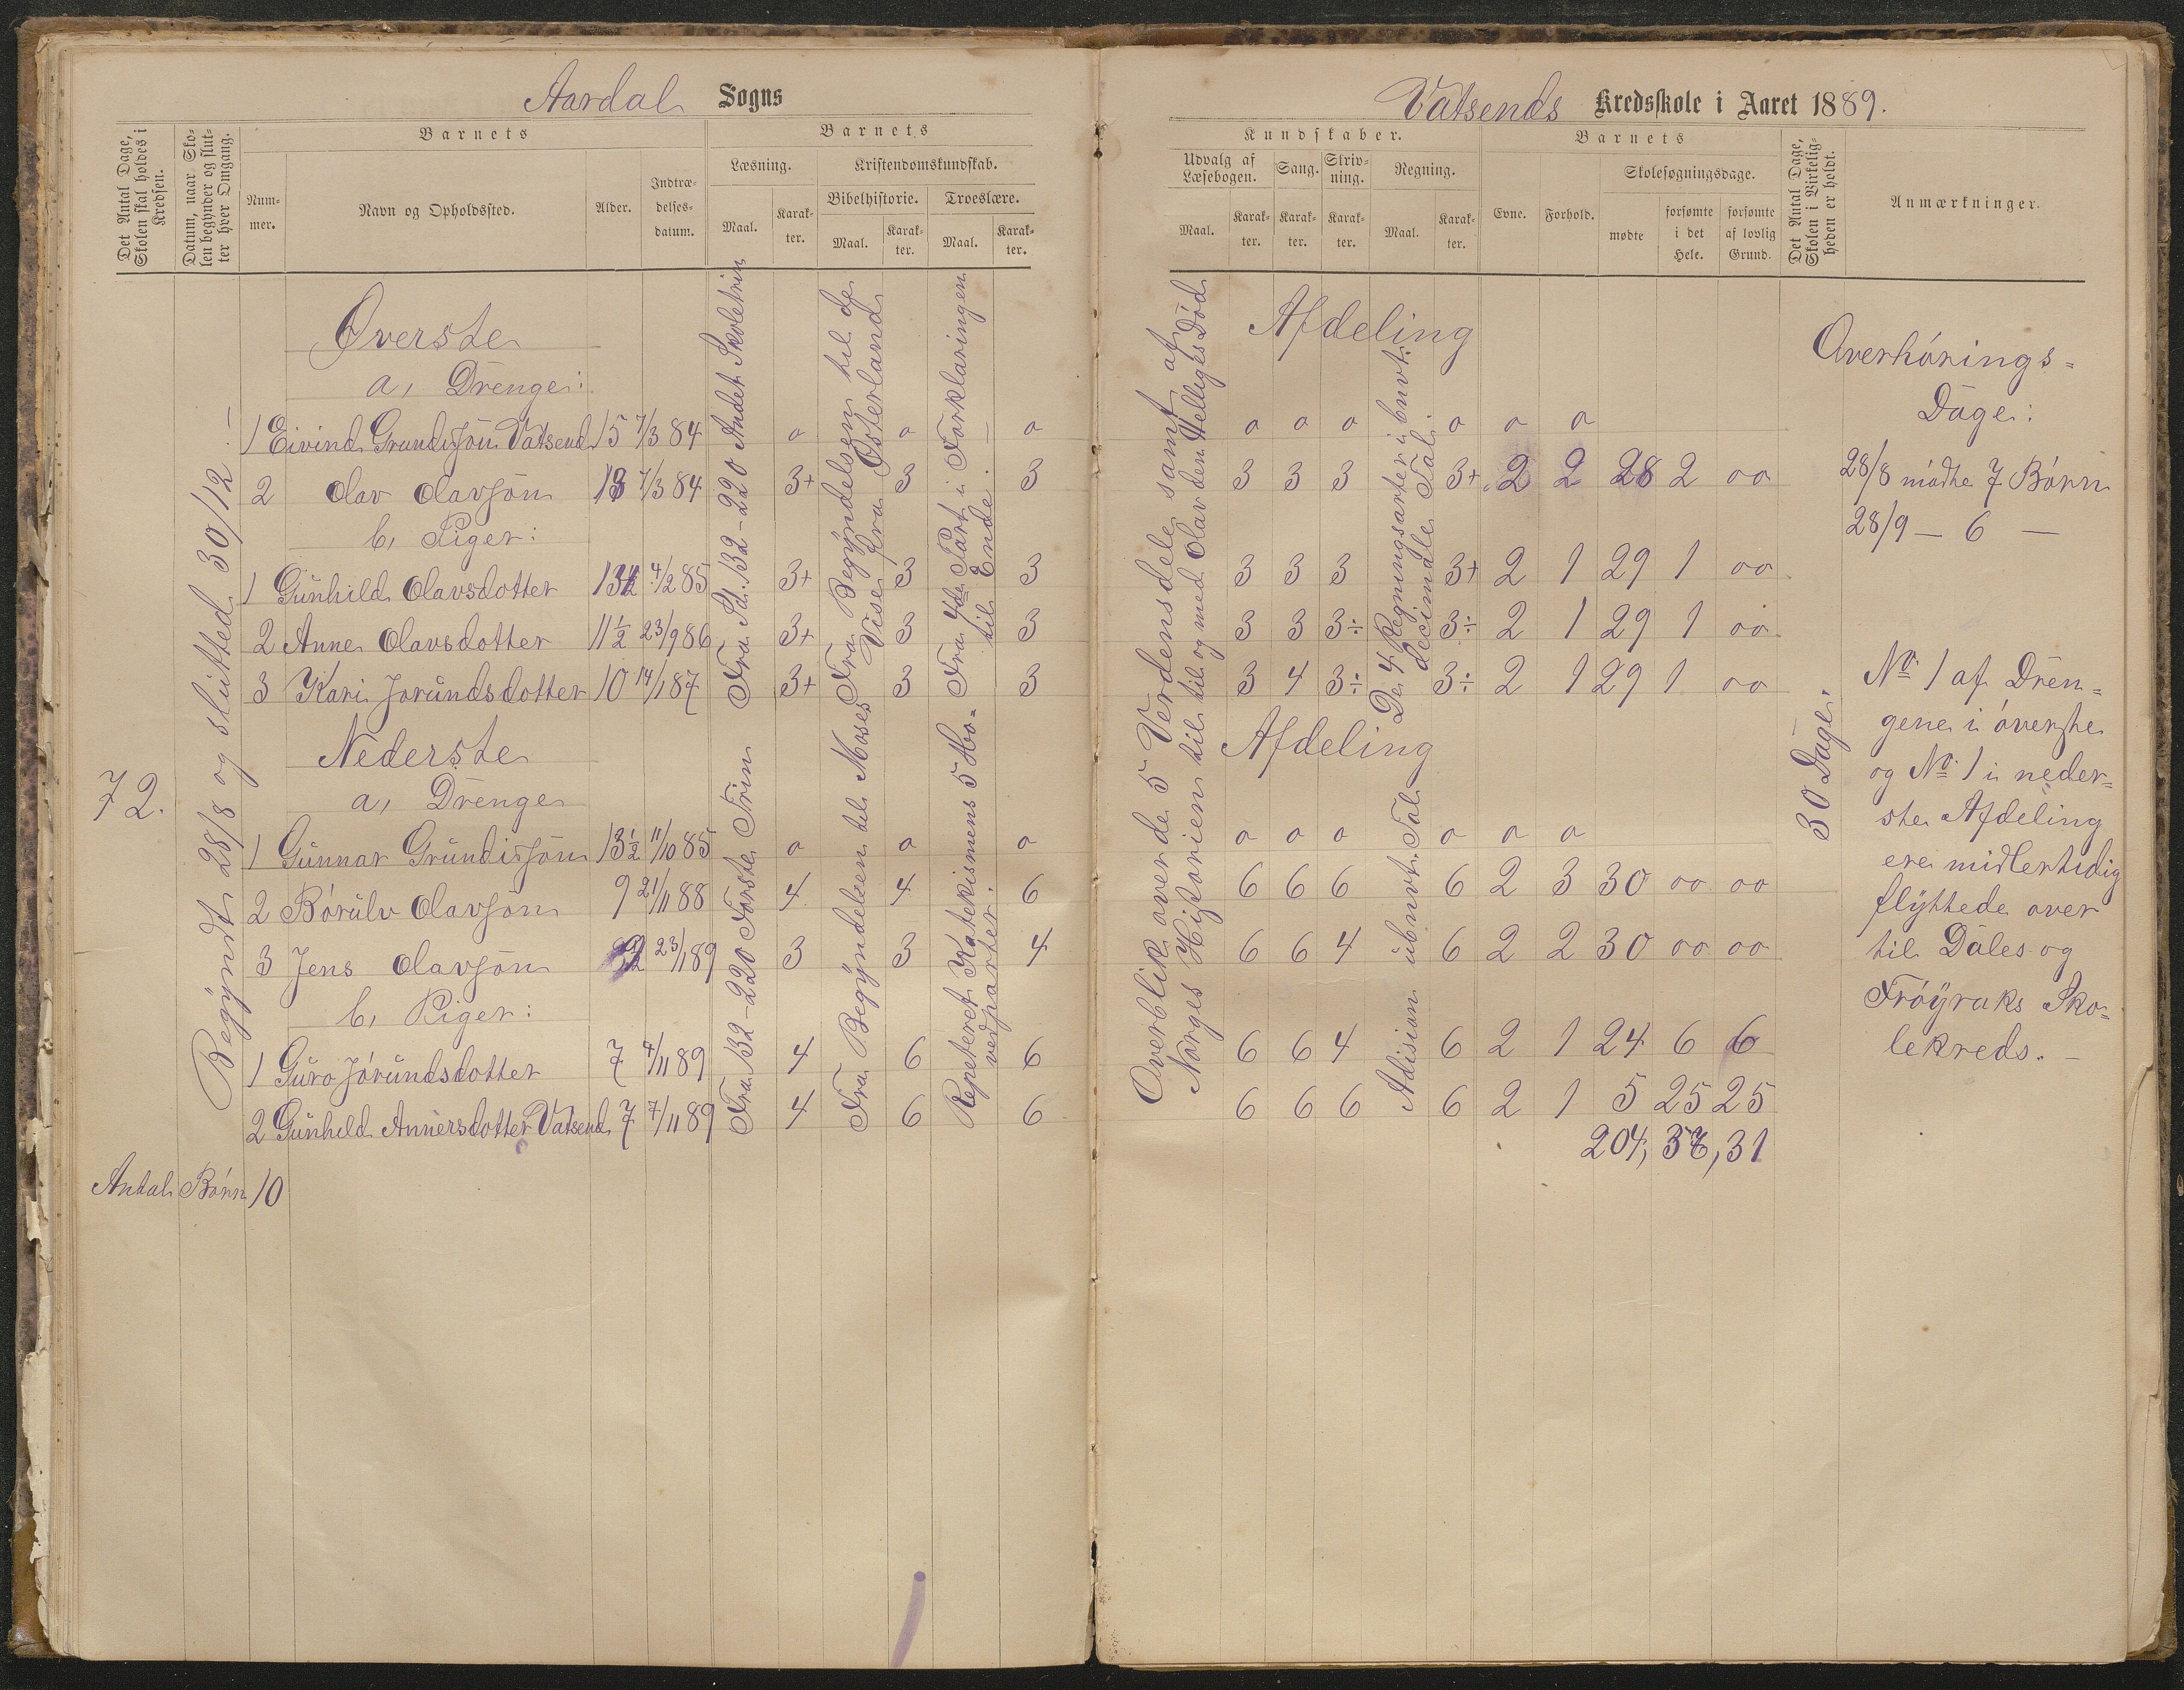 Aardal Sogns
Det Antal Dage, Skolen skal holdes i Kredsen.
Datum, naar Skolen begynder og slutter hver Omgang.
Barnets
Nummer.
Navn og Opholdssted.
Alder.
Indtrædelsesdatum.
Barnets
Læsning.
Maal.
Karakter.
Kristendomskundskab.
Bibelhistorie.
Maal.
Karakter.
Troeslære.
Maal.
Karakter.
72.
Begyndt 28/8 og slutted 30/12.—
Øverste
a, Drenge:
1 Eivind Grundisjön Vatsend 15 7/3 84 o o o
2 Olav Olavsön 13 7/3 84 3+ 3 3
b, Piger:
1 Gunhild Olavsdotter 13½ 4/2 85 3+ 3 3
2 Anne Olavsdotter 11½ 23/9 86 3+ 3 3
3 Kari Jorundsdotter 10 14/1 87 3+ 3 3
Fra Sd. 132-220 Andet Skoletrin
Fra Begyndelsen til de
Vise fra Østerland
Fra 4de Part i Forklaringen
til Ende. —
Nederste
a, Drenge
1 Gunnar Grundisjön 13½ 11/10 85 o o o
2 Börulv Olavsön 9 21/11 88 4 4 6
3 Jens Olavsön 23/1 89 3 3 4
b, Piger:
1 Guro Jörundsdotter 7 4/11 89 4 6 6
2 Gunhild Annersdotter Vatsend 7 7/11 89 4 6 6
Fra 132-220 Förste Trin
Fra Begyndelsen til Moses
Repeteret Katekismens 5 Ho-
vedparter.
Antal Börn 10
Vatsends Kredsskole i Aaret 1889.
Kundskaber.
Udvalg af Læsebogen.
Maal.
Karakter.
Sang.
Karakter.
Skrivning.
Karakter.
Regning.
Maal.
Karakter.
Barnets
Evne.
Forhold.
Skolesøgningsdage.
mødte
forsømte i det Hele.
forsømte af lovlig Grund.
Det Antal Dage, Skolen i Virkeligheden er holdt.
Anmærkninger.
Overblik over de 5 Verdensdele samt af
Norges Historien til til og med Olav den Helliges Död
Afdeling
De 4 Regningsarter i bnvt.
decimale Tal.
o o o o o o
3 3 3 3+ 2 2 28 2 oo
3 3 3 3+ 2 1 29 1 oo
3 3 3÷ 3÷ 2 1 29 1 oo
3 4 3÷ 3÷ 2 1 29 1 oo
Afdeling
Adision i ubnvt. Tal
o o o o o o
6 6 6 6 2 3 30 oo oo
6 6 4 6 2 2 30 oo oo
6 6 4 6 2 1 24 6 6
6 6 6 6 2 1 5 25 25
204, 36, 31
30 Dage.
Overhörings-
Dage:
28/8 mödte 7 Börn
28/9 — 6 —
No 1 af Dren-
gene i överste
og No 1 i neder-
ste Afdeling
ere midlertidig
flyttede over
til Dales og
Fröyraks Sko-
lekreds. —